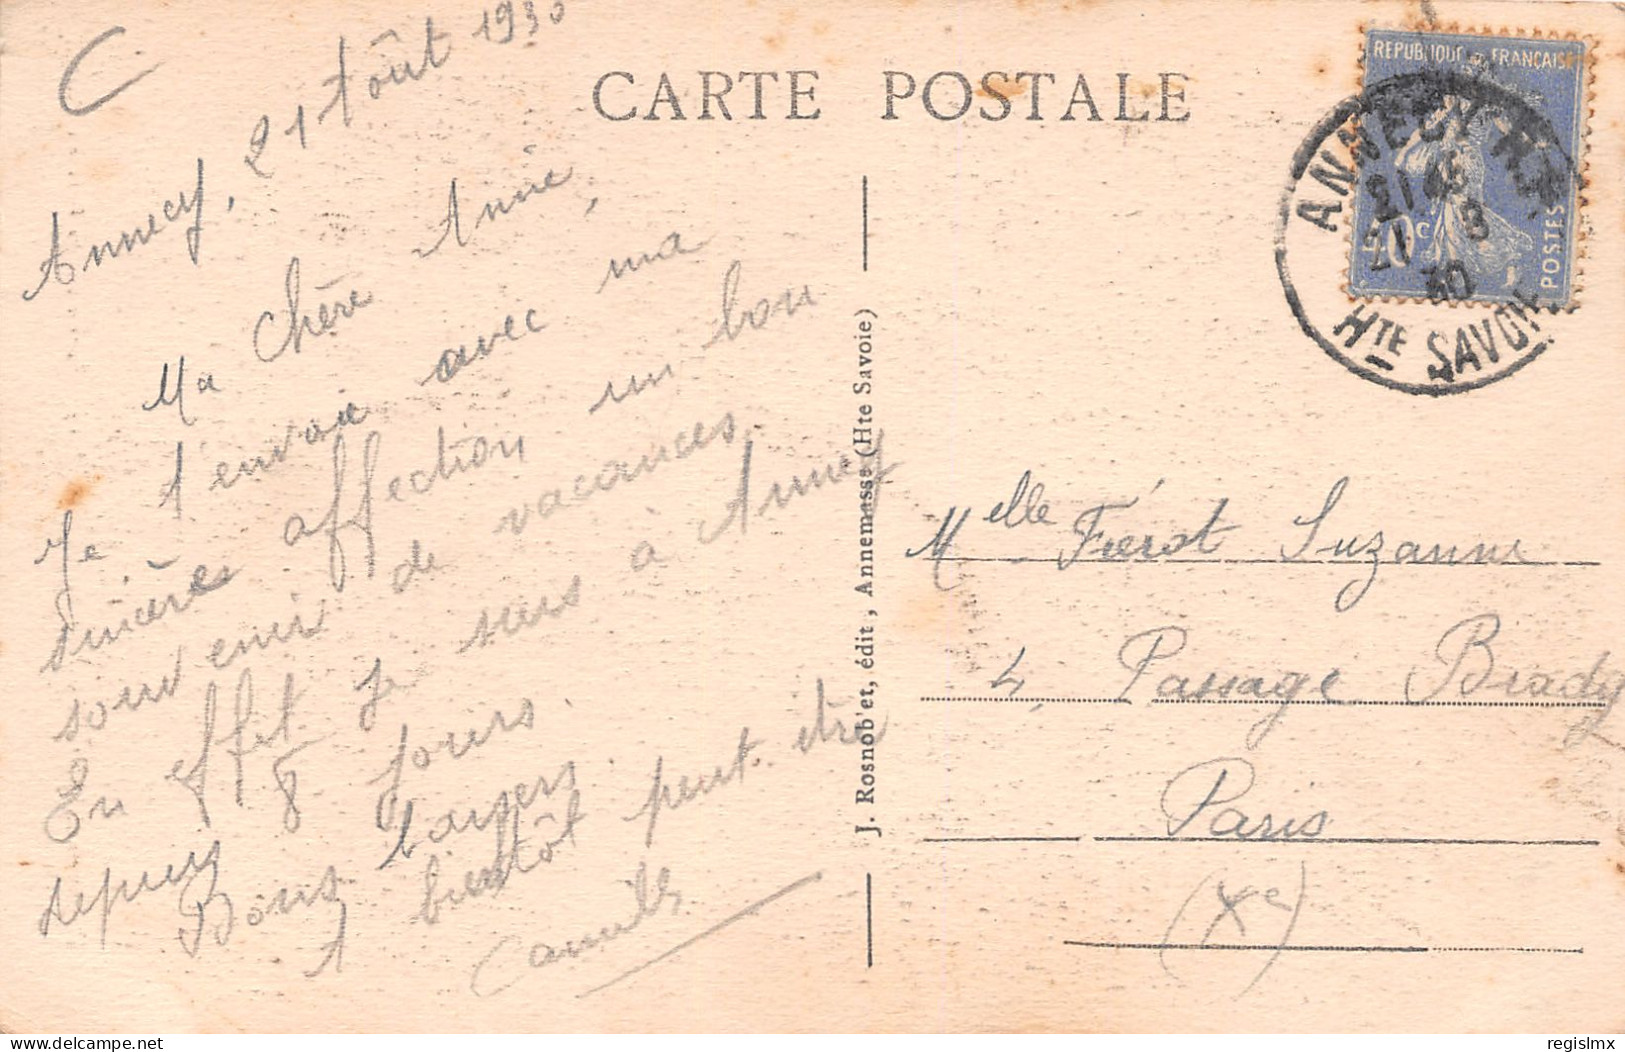 C
CARTE POSTALE
Annecy, 21 Août 1930
Ma Chère Amie,
Je t'envoie avec ma
sincères affection un bon
souvenir de vacances.
En effet je suis à Annecy
depuis 8 jours.
Bons baisers.
A bientôt peut-être
Camille
J. Rosnoblet, édit, Annemasse (Hte Savoie)
REPUBLIQUE FRANÇAISE
POSTES
ANNECY
21 8
30
HTE SAVOIE
Melle Fiérot Suzanne
4, Passage Brady
Paris
(Xe)
delcampe.net
regislmx